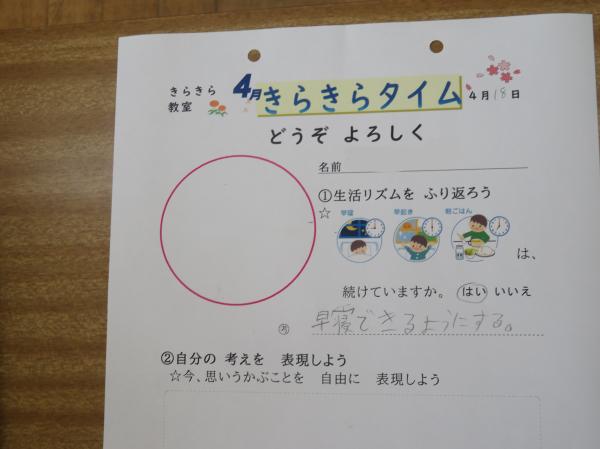 きらきら
教室
4月 きらきらタイム
4月18日
どうぞ よろしく
名前
①生活リズムを ふり返ろう
☆
早寝 早起き 朝ごはん
は、
続けていますか。 はい いいえ
早寝できるようにする。
②自分の 考えを 表現しよう
☆今、思いうかぶことを 自由に 表現しよう